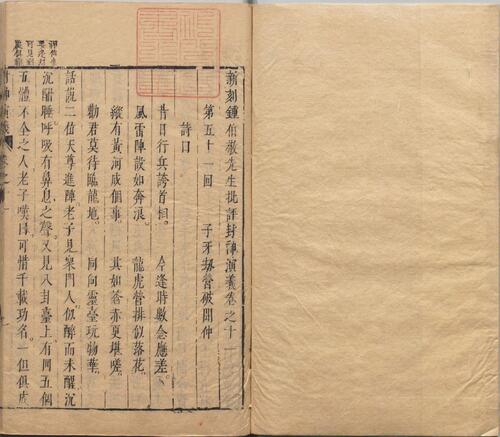 新刻鍾伯敬先生批評封神演義卷之十一
第五十一回 子牙劫營破聞仲
詩曰
昔日行兵誇首相 今逢時數念應差
風雷陣設如奔浪 龍虎營排似落花
縱有黃河成個事 其如蒼赤更堪嗟
勸君莫待臨龍地 同向靈臺玩物華
話說二位天尊進陣老子見衆門人似醉而未醒沉
沉酣睡呼吸有鼻息之聲又見八卦臺上有四五個
五體不全之人老子嘆曰可惜千載功名一但俱成